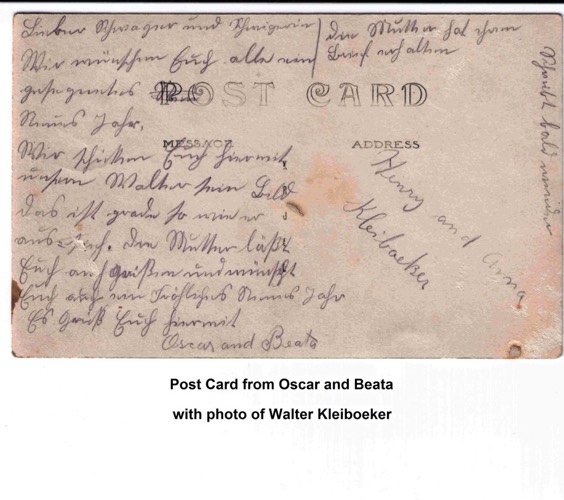 Lieber Schwager und Schwigerin
Wir wünschen Euch alle ein
gesegnetes
Neues Jahr,
Wir schicken Euch hiermit
unsern Walter sein Bild
das ist grade so wie er
aussieht. Die Mutter läßt
Euch auch grüßen und wünscht
Euch auch ein Fröhliches Neues Jahr
Es grüß Euch hiermit
Oscar and Beata
Die Mutter hat ihren
Brief erhalten
Schreibt bald wieder
POST CARD
MESSAGE
ADDRESS
Henry and Anna
Kleiboeker
Post Card from Oscar and Beata
with photo of Walter Kleiboeker